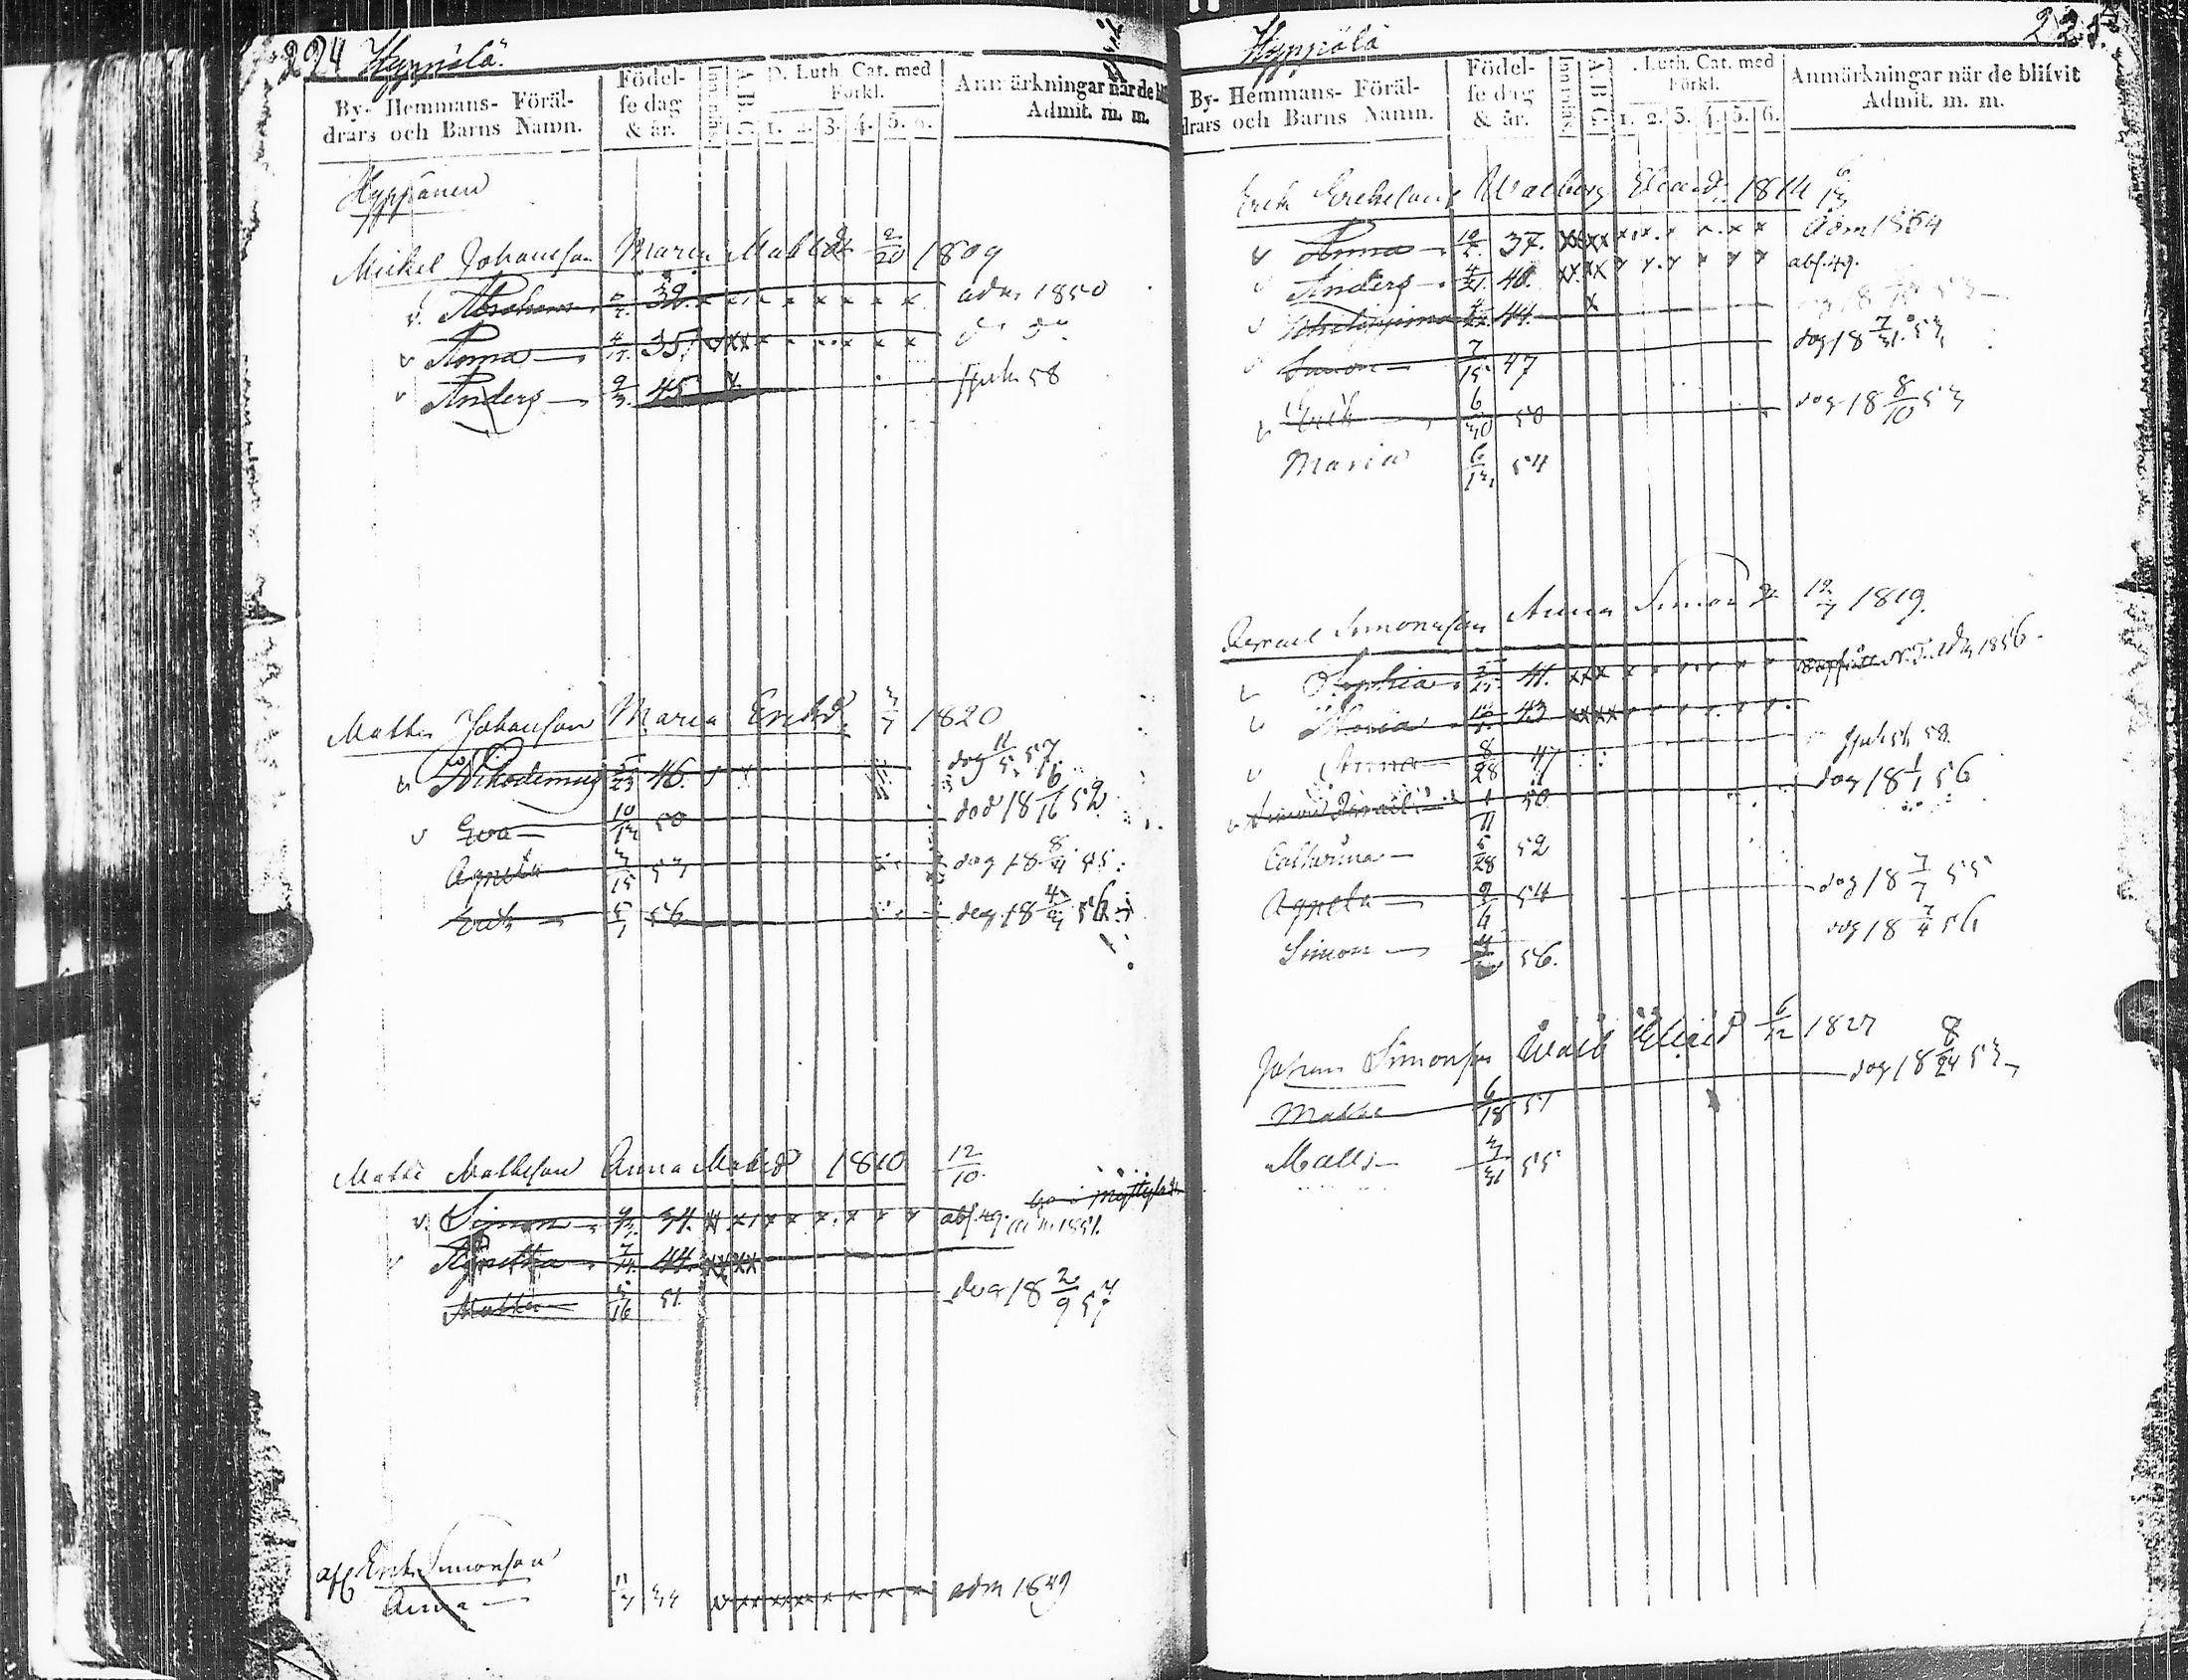 224 Hyppölä
By- Hemmans- Föräl-
drars och Barns Namn.
Födel-
se dag
& år.
Innanläs.
A.B.C.
D. Luth. Cat. med
Förkl.
1. 2. 3. 4. 5. 6.
Anmärkningar när de bli
Admit. m. m.
Hyppänen
Michel Johansson Maria Matsdr 2/20 1809
v. Abraham 32. x x x x x x x adm 1850
v Anna 35 x x x x x x x do do
v Anders 9/3. 45 x sjuk 58
Matts Johansson Maria Ericsd. 3/7 1820
v Nikodemus 46. dog 11/5. 57
v Eva 10/13 50 död 18 6/16 52
Agneta 3/15 53 dog 18
Erik 5/1 56 dog 18 56
Matts Mattsson Anna Matsd 1810 12/10.
v. Simon 34. x x x x x x x abs. 49. adm 1851.
v Agnetha 7/14. 44. xxxx
Matts 5/16 51. dog 18 2/9 57
Erik Simonsson
Anna 11/7 33 x x x x x x x adm 1849
Hyppölä 225.
By- Hemmans- Föräl-
drars och Barns Namn.
Födel-
se dag
& år.
Innanläs.
A.B.C.
D. Luth. Cat. med
Förkl.
1. 2. 3. 4. 5. 6.
Anmärkningar när de bliívit
Admit. m. m.
Erik Erichsson Walborg Eliaed. 1814 6/13
v Anna 37. xxxx x x x x x x Adm 1854
v Anders 4/21. 40. xx xx x x x x x x abs. 49.
v Philippina 44. x
v Simon 7/15 47 dog 18 7/31. 53
v Erik 6/30 50 dog 18 8/10 53
Maria 6/13 54
Israel Simonsson Anna Simonsdr 12/7 1819.
v Sophia 41. xxx x x x x x x N. T. adm 1856.
v Maria 43 xxxx x x x x x x
v Anna 8/28 47 sjuk 58
v Simon Israel 1/11 50 dog 18 1/1 56
Catharina 5/28 52
Agneta 9/6 54 dog 18 7/7 55
Simon 56. dog 18 7/4 56
Johan Simonss Walb Eliaed 6/12 1827
Matts 6/18 51 dog 18 8/24 53
Matts 3/31 55